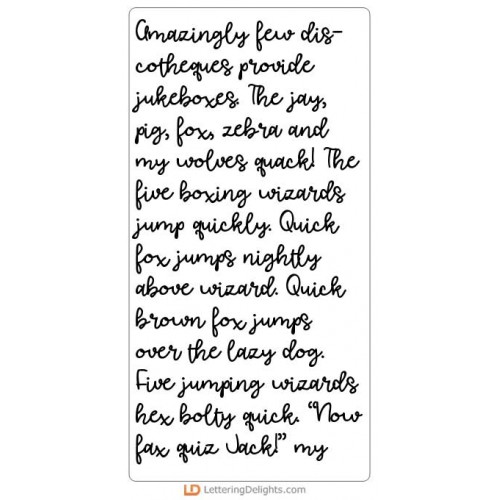 Amazingly few dis-
cotheques provide
jukeboxes. The jay,
pig, fox, zebra and
my wolves quack! The
five boxing wizards
jump quickly. Quick
fox jumps nightly
above wizard. Quick
brown fox jumps
over the lazy dog.
Five jumping wizards
hex bolty quick. “Now
fax quiz Jack!” my
LD LetteringDelights.com